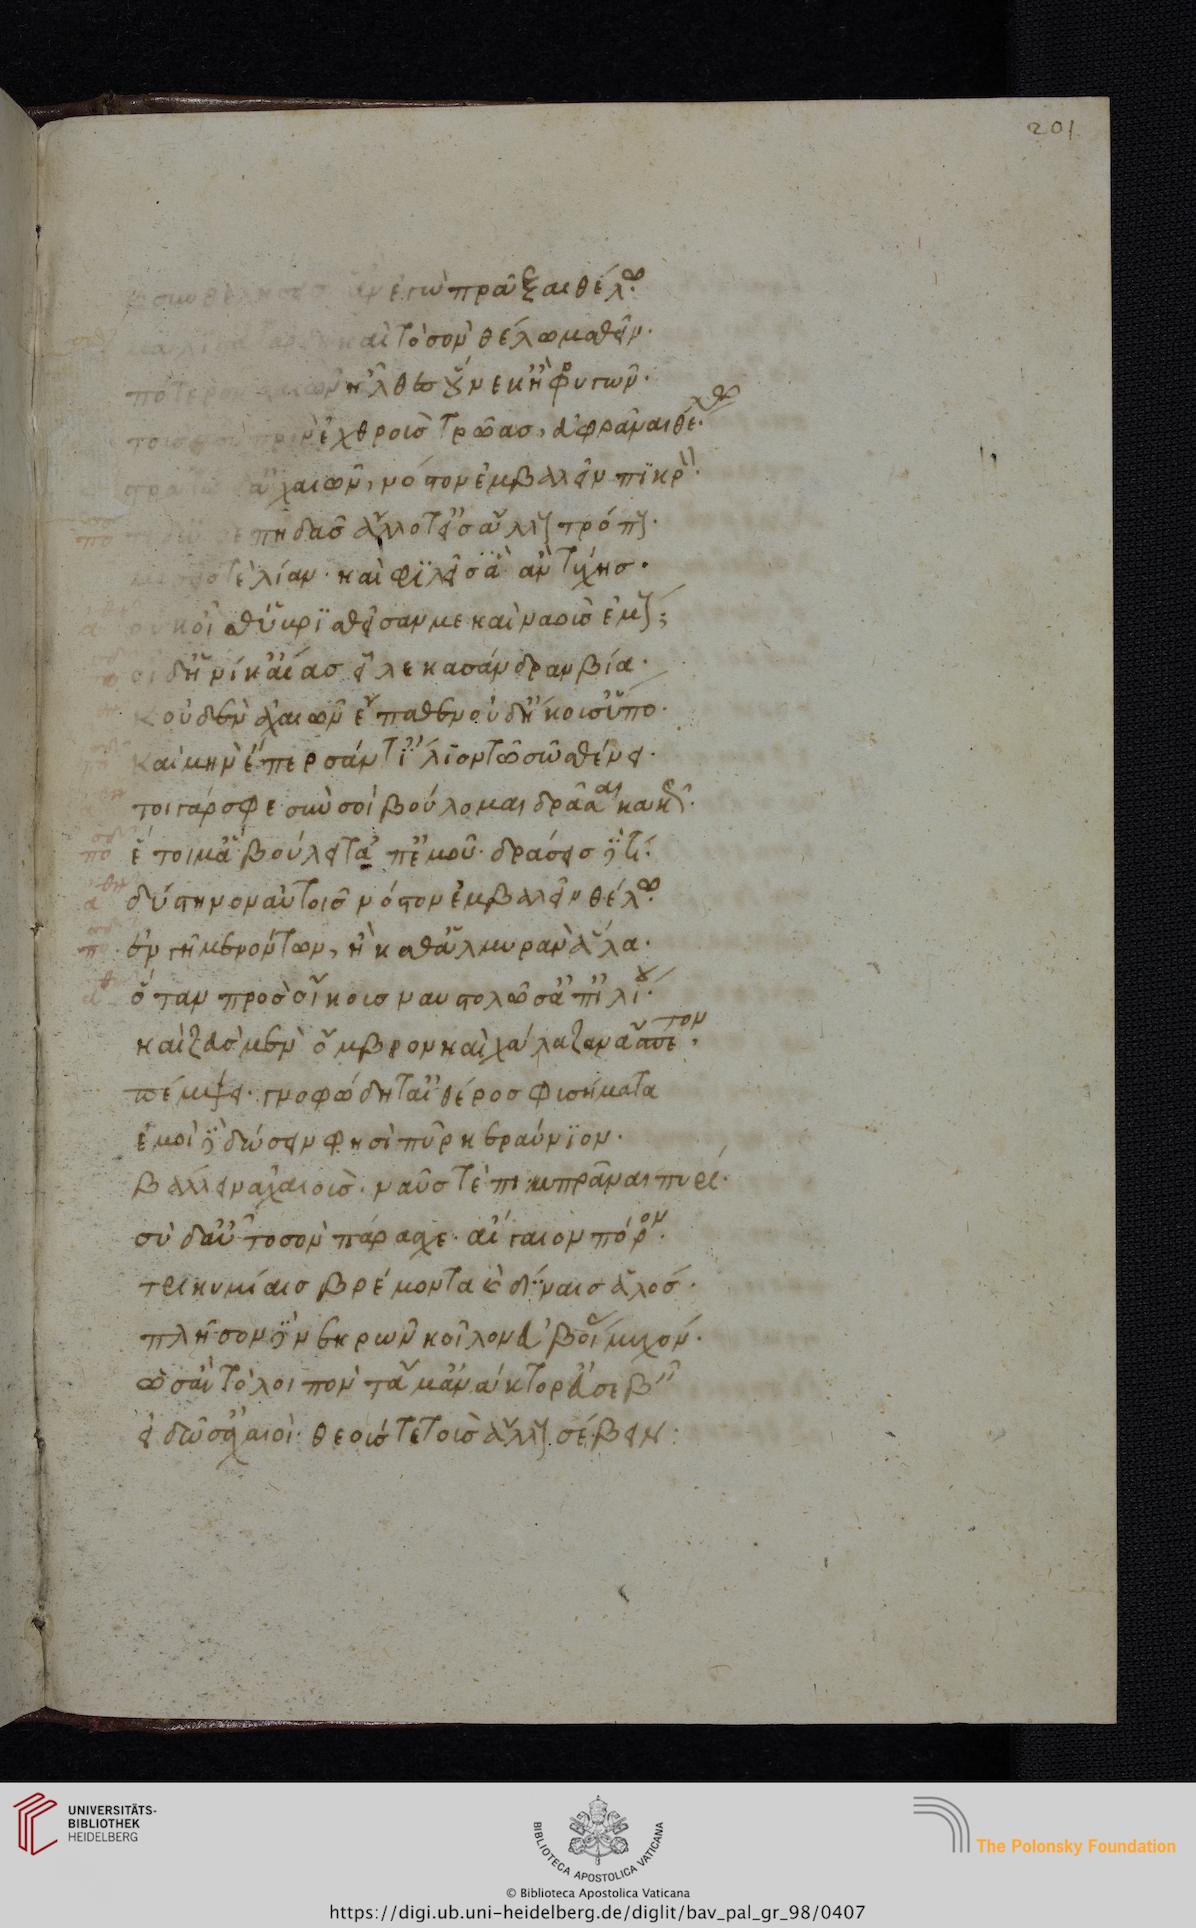 201
συνθελήσεις ἂν ἐγὼ πρᾶξαι θέλω.
καὶ τὸ σὸν θέλω μαθεῖν.
πότερον ἀχαιῶν ἦλθες οὕνεκ' ἢ φρυγῶν.
τοὺς μὲν πρὶν ἐχθροὺς τρῶας, εὐφρᾶναι θέλω.
στρατῷ δ' ἀχαιῶν, νόστον ἐμβαλεῖν πικρόν.
τί δ' ὧδε πηδᾷς ἄλλοτ' εἰς ἄλλους τρόπους.
μισεῖς τε λίαν· καὶ φιλεῖς ὃν ἂν τύχης.
οὐκ οἶσθ' ὑβρισθεῖσάν με καὶ ναοὺς ἐμούς;
οἶδ' ἡνίκ' αἴας εἷλε κασάνδραν βίᾳ.
κοὐδὲν ἀχαιῶν ἔπαθεν οὐδ' ἤκουσ' ὕπο.
καὶ μὴν ἔπερσάν τ' ἴλιον τῷ σῷ σθένει.
τοιγάρ σφε σὺν σοὶ βούλομαι δρᾶσαι κακῶς.
ἕτοιμ' ἃ βούλει τἀπ' ἐμοῦ· δράσεις δὲ τί.
δύστηνον αὐτοῖς νόστον ἐμβαλεῖν θέλω.
ἐν γῇ μενόντων, ἢ καθ' ἁλμυρὰν ἅλα.
ὅταν πρὸς οἴκους ναυστολῶσ' ἀπ' ἰλίου.
καὶ ζεὺς μὲν ὄμβρον καὶ χάλαζαν ἄσπετον.
πέμψει· γνοφώδη τ' αἰθέρος φυσήματα
ἐμοὶ δὲ δώσειν φησὶ πῦρ κεραύνιον.
βάλλειν ἀχαιοὺς· ναῦς τε πιμπράναι πυρί.
σὺ δ' αὖ τὸ σὸν παράσχε· αἰγαῖον πόρον.
τρικυμίαις βρέμοντα καὶ δίναις ἁλός.
πλῆσον δὲ νεκρῶν κοῖλον εὐβοίας μυχόν.
ὡς ἂν τὸ λοιπὸν τἄμ' ἀνάκτορ' εὐσεβεῖν
εἰδῶσ' ἀχαιοί· θεούς τε τοὺς ἄλλους σέβειν:
UNIVERSITÄTS-
BIBLIOTHEK
HEIDELBERG
BIBLIOTECA APOSTOLICA VATICANA
The Polonsky Foundation
© Biblioteca Apostolica Vaticana
https://digi.ub.uni-heidelberg.de/diglit/bav_pal_gr_98/0407